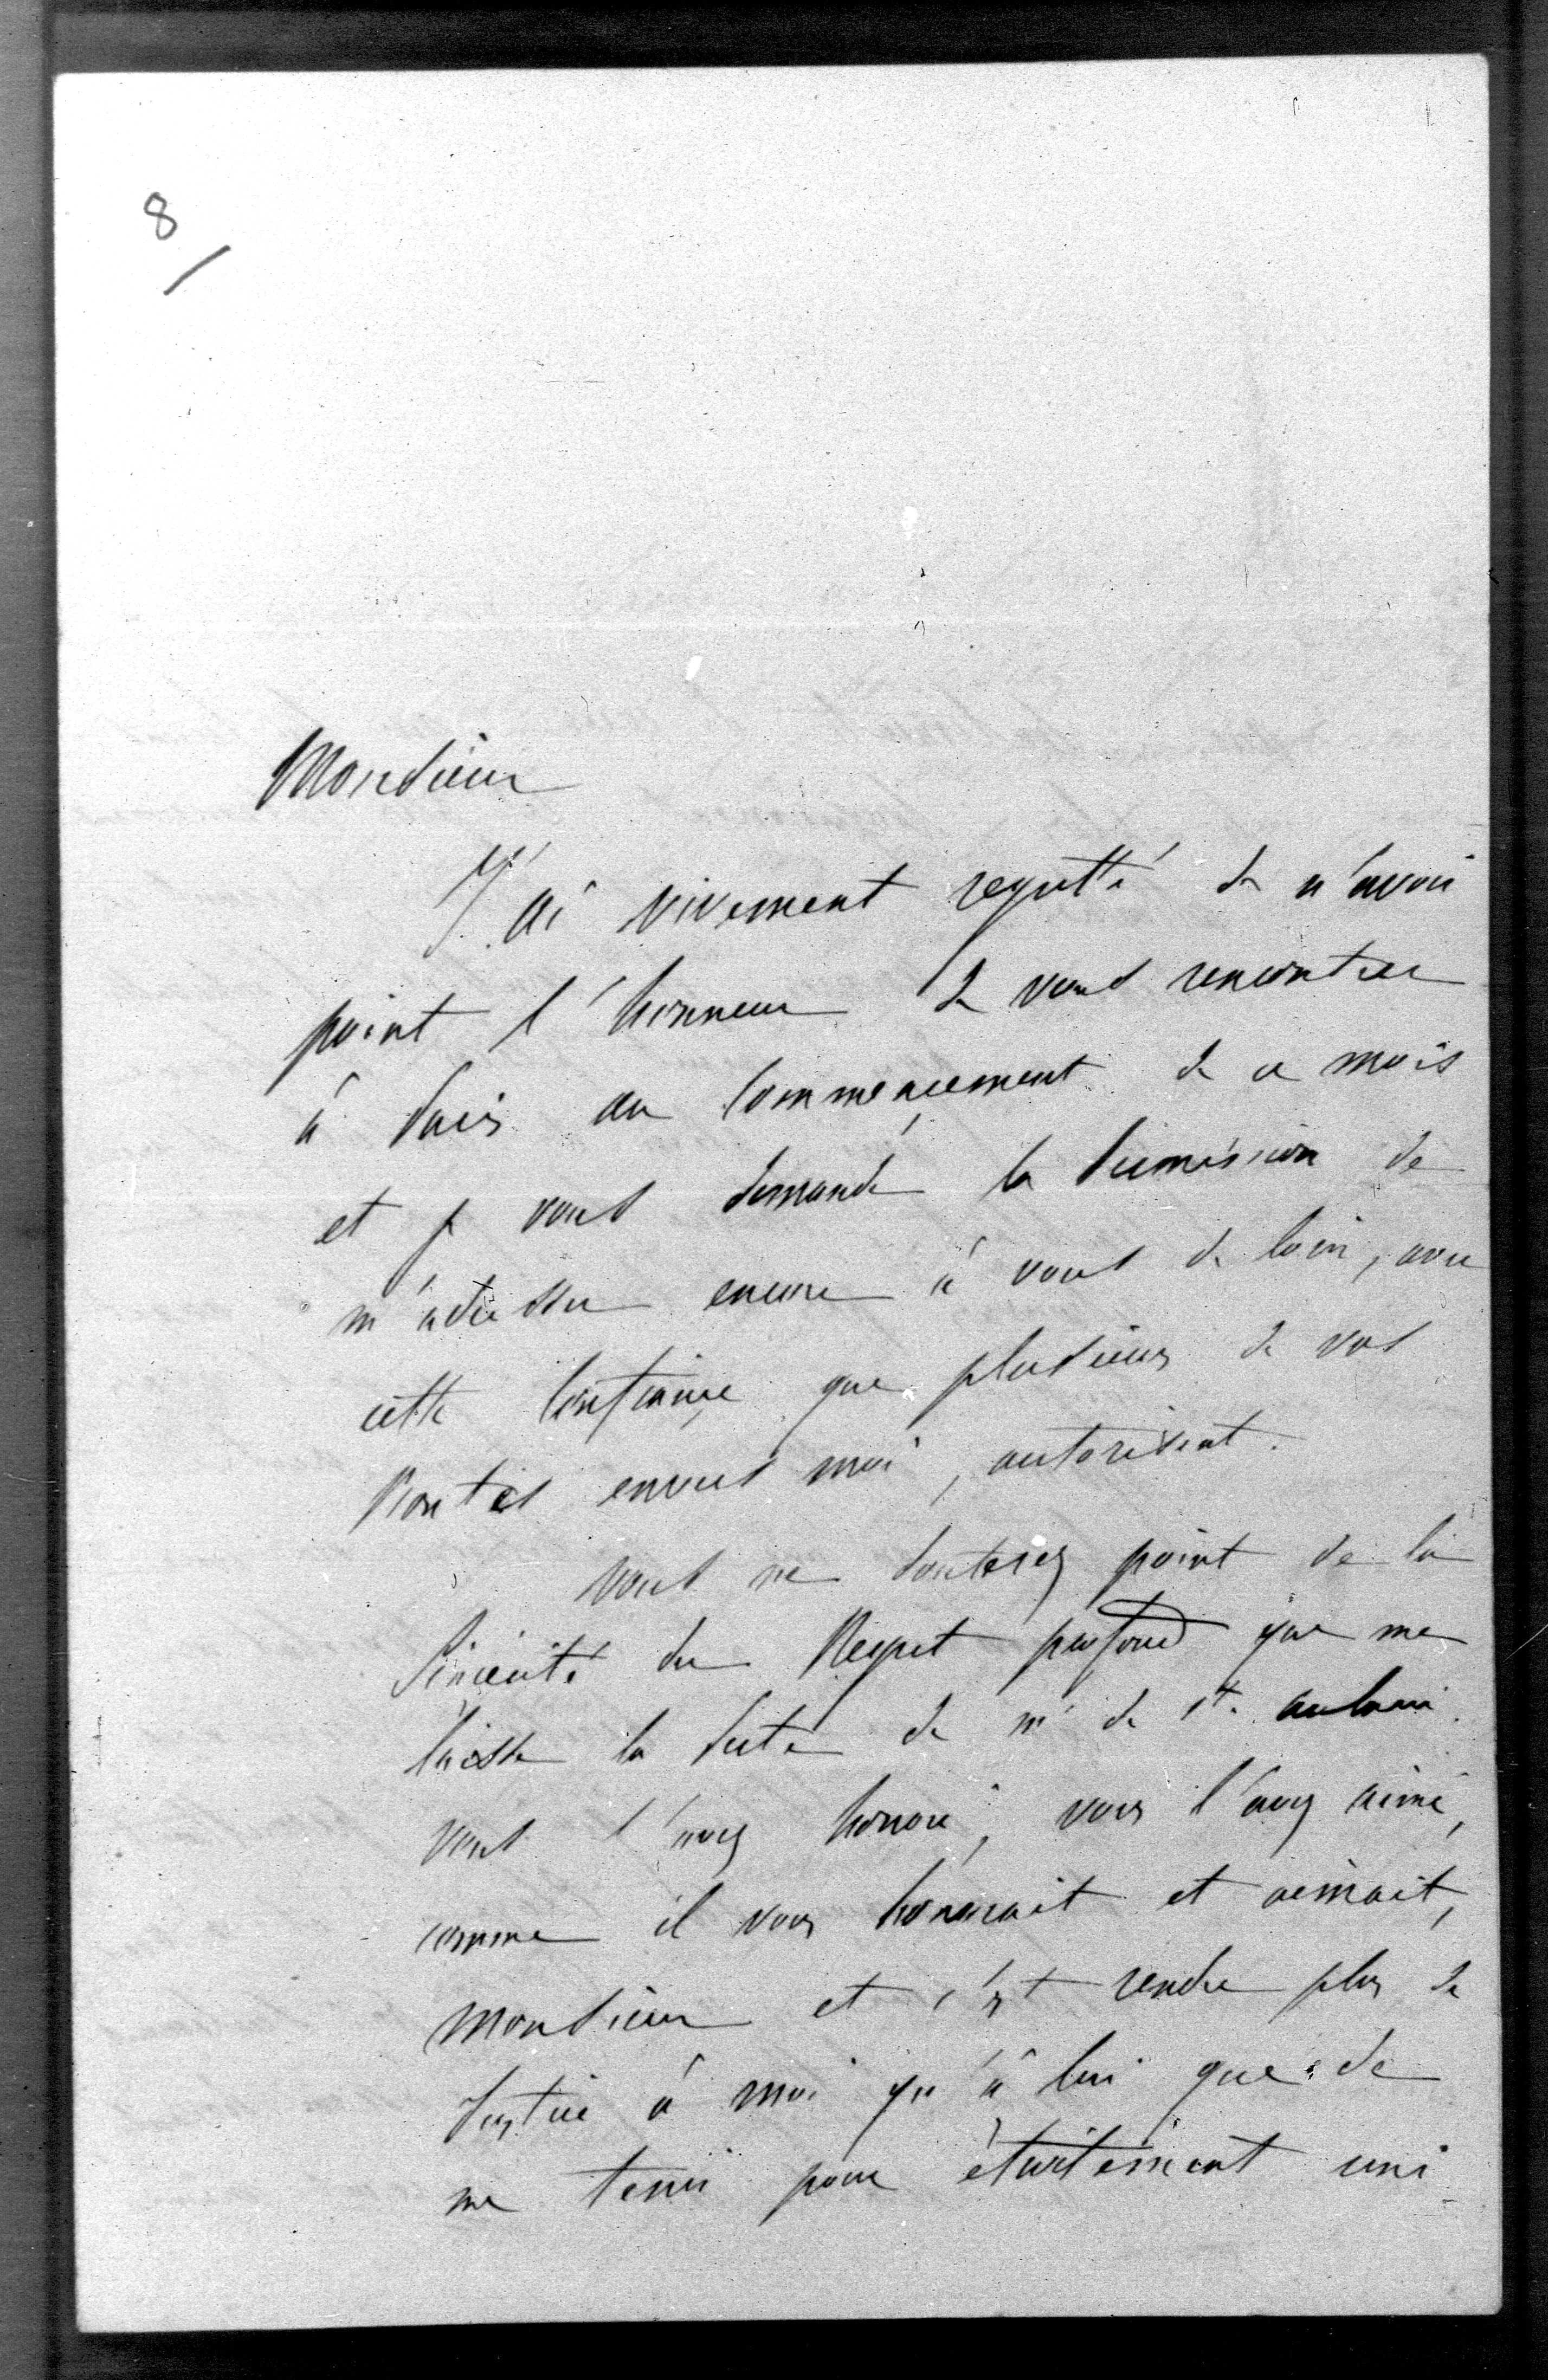 8
Monsieur
J'ai vivement regretté de n'avoir
point l'honneur de vous rencontrer
à Paris au commencement de ce mois
et je vous demande la permission de
m'adresser encore à vous de loin, avec
cette confiance que plusieurs de vos
bontés envers moi, autorisent.
vous ne douterez point de la
sincérité du Regret profond que me
laisse la perte de mr de Ste aulaire.
vous l'avez honoré, vous l'avez aimé,
comme il vous honorait et aimait,
monsieur et c'est rendre plus de
Justice à moi qu'à lui que de
me tenir pour étroitement uni